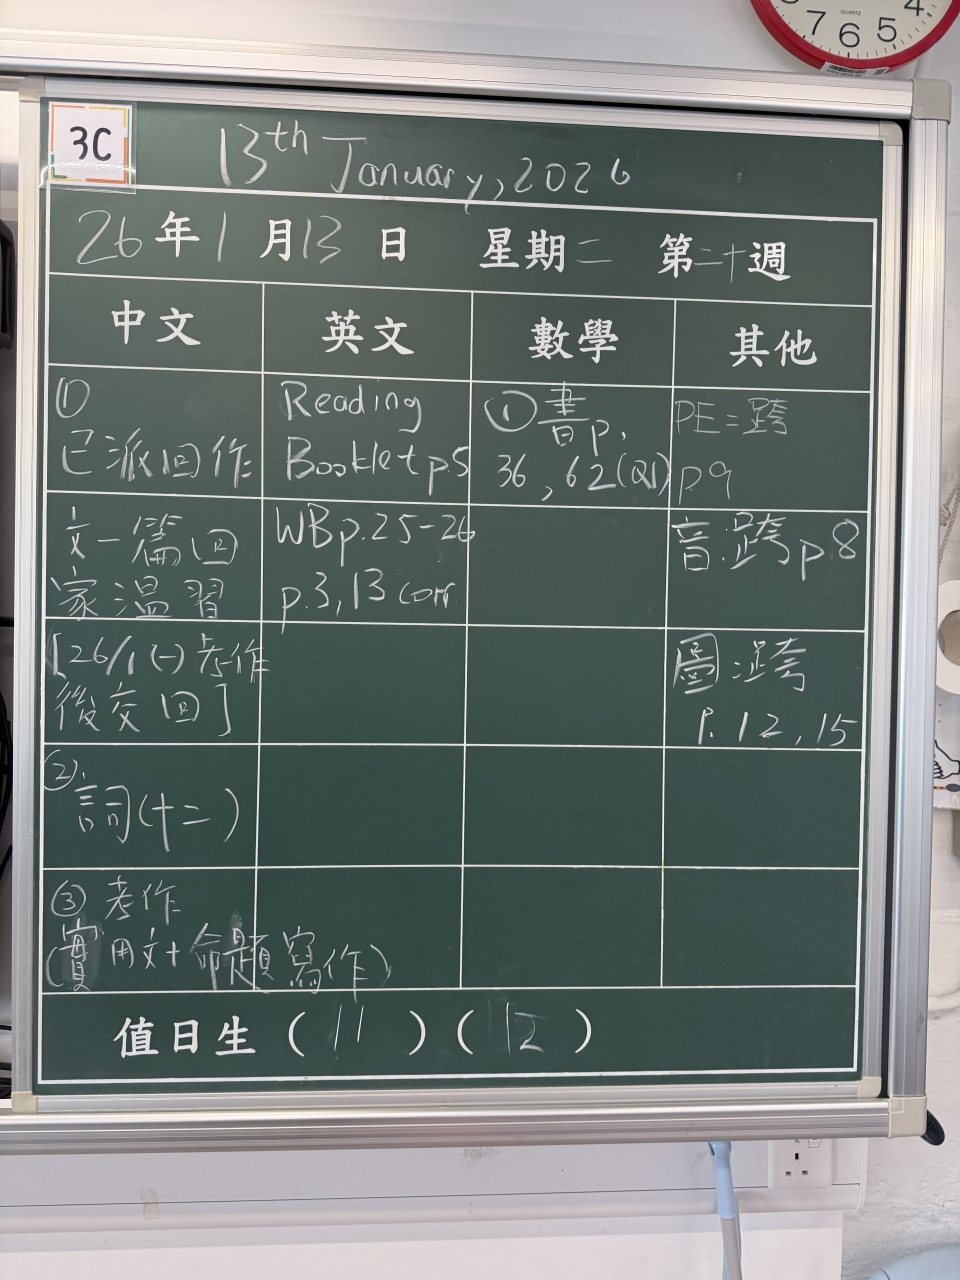 4
7 6 5
QUARTZ
3C
13th January, 2026
26年1月13日 星期二 第二十週
中文 英文 數學 其他
①
已派回作
文一篇回
家溫習
[26/1(一)考作
後交回]
②
詞(十二)
③考作
(實用文+命題寫作)
Reading
Booklet p5
WBp.25-26
p.3, 13 corr.
①書p.
36, 62(Q1)
PE:跨
p9
音:跨p8
圖:跨
P. 12, 15
值日生 (11) (12)